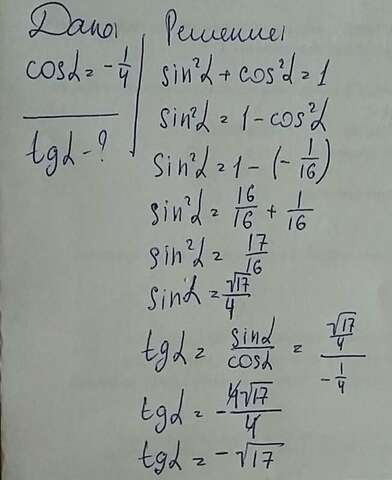 Дано:
cosα = -1/4
tgα - ?
Решение:
sin²α + cos²α = 1
sin²α = 1 - cos²α
sin²α = 1 - (-1/16)
sin²α = 16/16 + 1/16
sin²α = 17/16
sinα = √17/4
tgα = sinα/cosα = (√17/4)/(-1/4)
tgα = -4√17/4
tgα = -√17